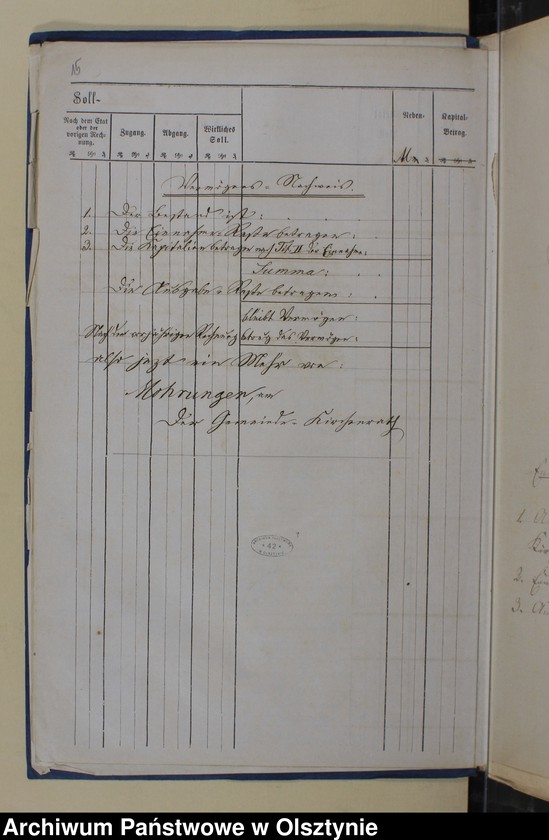 15
Soll-
Nach dem Etat oder der vorigen Rechnung.
Zugang.
Abgang.
Wirkliches Soll.
Neben-
Kapital-Betrag.
M
Vermögens-Nachweis.
1. Der Bestand ist:
2. Die Einnahme-Reste betragen:
3. Die Kapitalien betragen nach Tit. II der Einnahme:
Summa:
Die Ausgabe-Reste betragen:
bleibt Vermögen:
Nach der vorjährigen Rechnung betrug das Vermögen:
also jetzt ein Mehr von:
Mohrungen, am
Der Gemeinde-Kirchenrath
* 42 *
1.
2.
3.
Archiwum Państwowe w Olsztynie